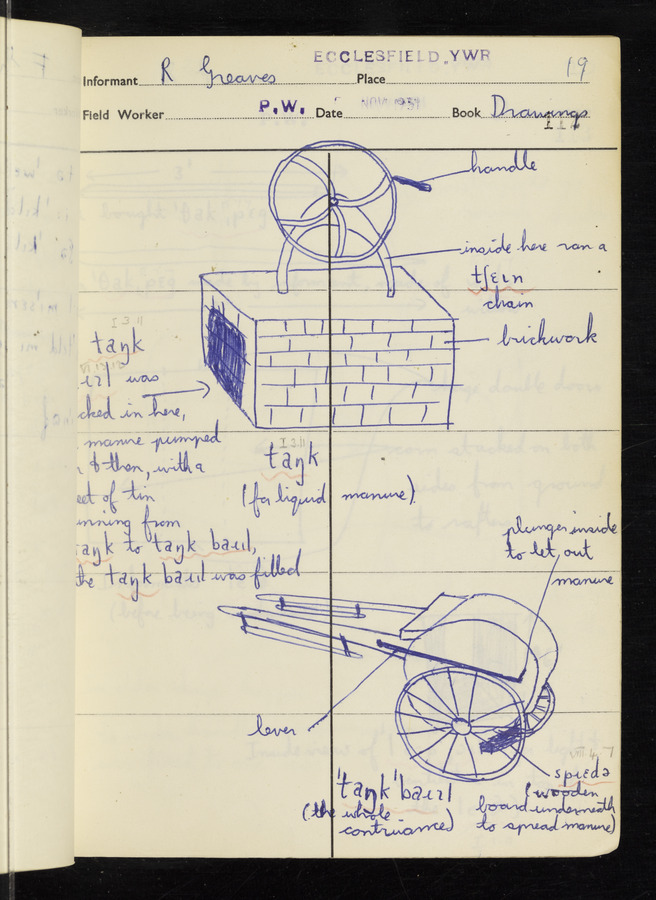 ECCLESFIELD, YWR
Informant R Greaves Place 19
Field Worker P.W. Date NOV 195 Book Drawings
III
handle
inside here ran a
tʃɛɪn
chain
brickwork
I 3 11
taŋk
was
cked in here,
manure pumped
& then, with a
eet of tin
unning from
taŋk to taŋk baɪl,
the taŋk baɪl was filled
I 3 11
taŋk
(for liquid manure)
plunger inside
to let out
manure
lever
spɹɛdə
(wooden
board underneath
to spread manure)
'taŋk'baɪl
(the whole
contrivance)